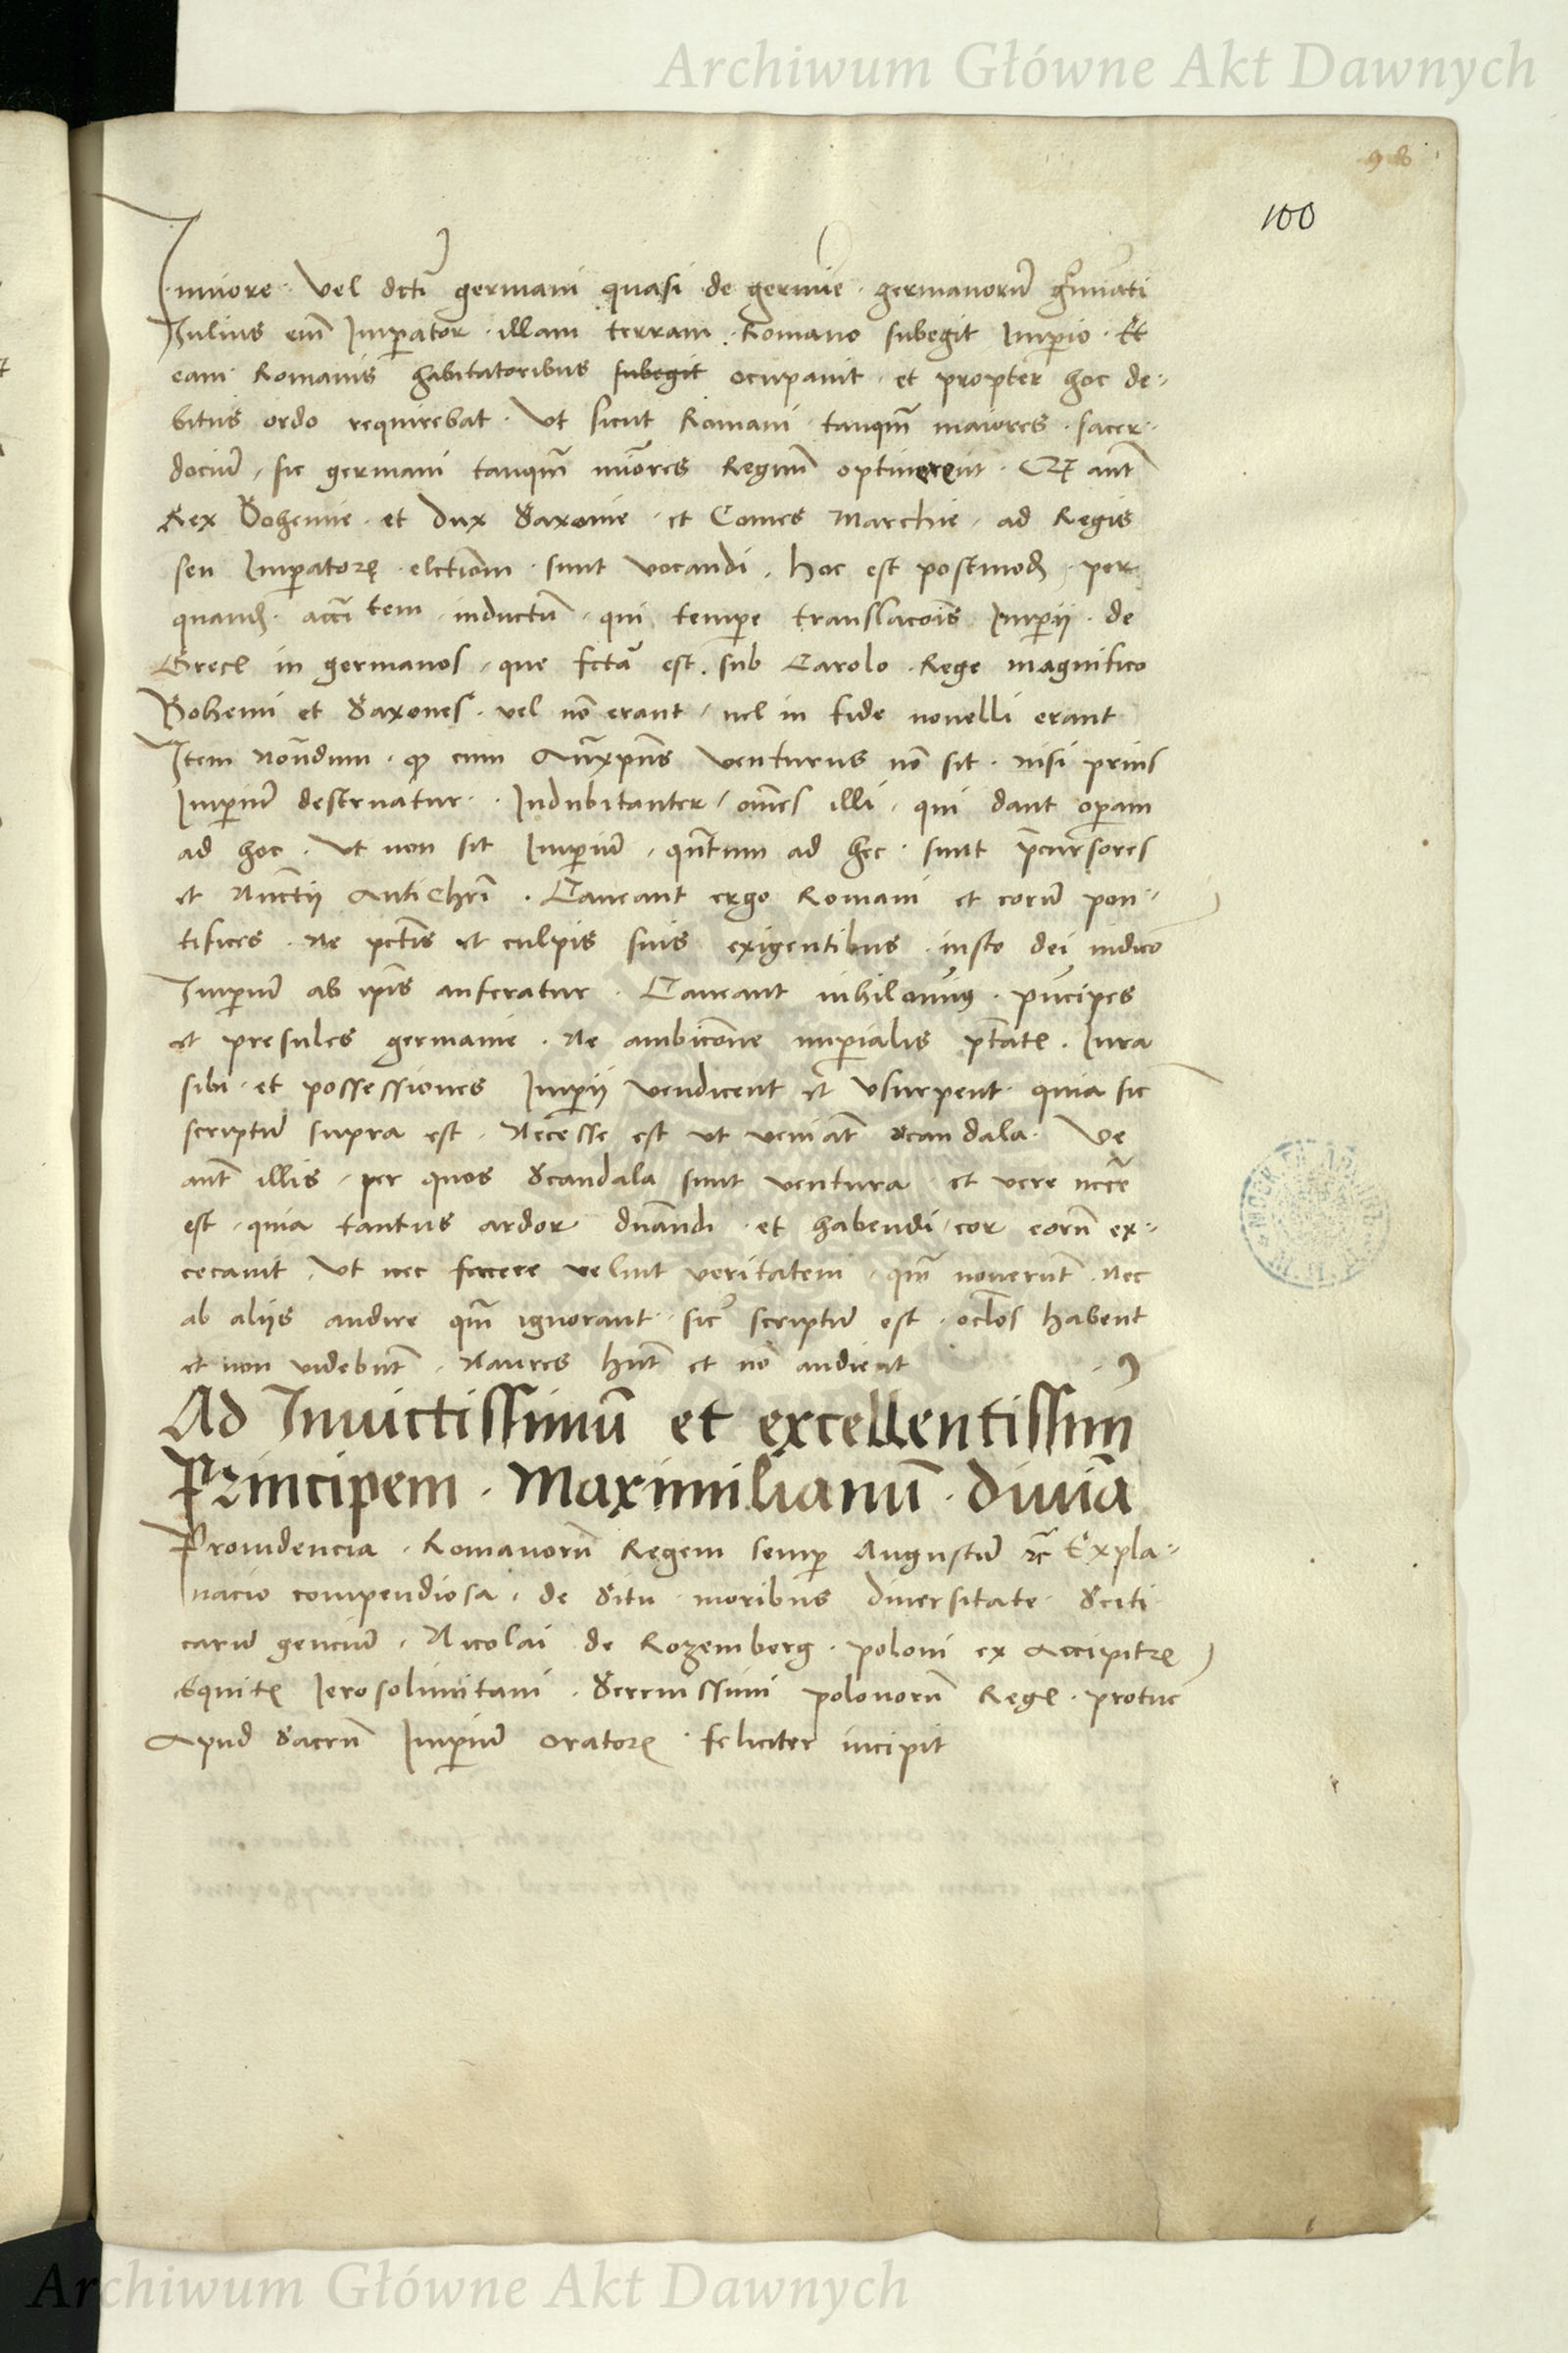 Archiwum Główne Akt Dawnych
98
100
Iuniore · vel dcti germani quasi de germine · germanorũ
Iulius em̃ Imp̱ator · illam terram · Romano subegit Imp̱io · Et
eam Romanis habitatoribus subegit ocupauit · et propter hoc de-
bitus ordo requirebat · Vt sicut Romani tanqm̃ maiores · sacer-
dociũ · sic germani tanqm̃ mĩores Regnũ optinerent · Qz aut̃
Rex Bohemie · et Dux Saxonie · et Comes Marchie · ad Regis
seu Imp̱atorꝭ · elctiom̃ · sunt vocandi · hoc est postmodꝫ · per
quandꝫ · acc̃i tem · inductũ · qui temp̱e translac̃ois Imp̱ii · de
Grecꝭ in germanos · que fcta est · sub Carolo · Rege magnifico
Bohemi et Saxones · vel nõ erant / uel in fide nouelli erant
Item Notãdum · ꝙ cum Anxp̃us venturus nõ sit · nisi prius
Imp̱iũ destruatur · Indubitanter / om̃es illi · qui dant op̱am
ad hoc · Vt non sit Imp̱iũ · qñtum ad hec · sunt p̃cursores
et Nunctij AntiChrĩ · Caueant ergo Romani et eorũ pon-
tifices · Ne pctĩs et culpis suis exigentibus · iusto dei iudico
Imp̱iũ ab ip̃is auferatur · Caueant nihilomĩꝰ · p̃ncipes
et presules germanie · Ne ambic̃one imp̱ialis p̃tatꝭ · Iura
sibi · et possessiones Imp̱ii vendicent et vsurpent · quia sic
scriptũ supra est · Necesse est vt veniãt scandala · Ve
aut̃ illis · per quos Scandala sunt ventura · et vere necc̃e
est · quia tantus ardor dñandi · et habendi · cor eorũ ex-
cecauit · Vt nec facere velint veritatem · qm̃ nouerũt · Nec
ab aliis audire qm̃ ignorant · sic scriptũ est · oclos habent
et non videbũt · Naures hñt et nõ audient
Ad Inuictissimũ et excellentissim̃
Principem · Maximilianũ · diuĩa
Prouidencia · Romanorũ Regem semp̱ Augustũ ꝛc̃ Expla-
nacio compendiosa · de Situ moribus diuersitate Sciti
carũ genciũ · Nicolai de Rozemberg · poloni ex Accipitrꝭ
Equitꝭ Ierosolimitani · Serenissimi polonorũ Regꝭ · protũc
Apud Sacrũ Imp̱iũ oratorꝭ · feliciter incipit
Archiwum Główne Akt Dawnych